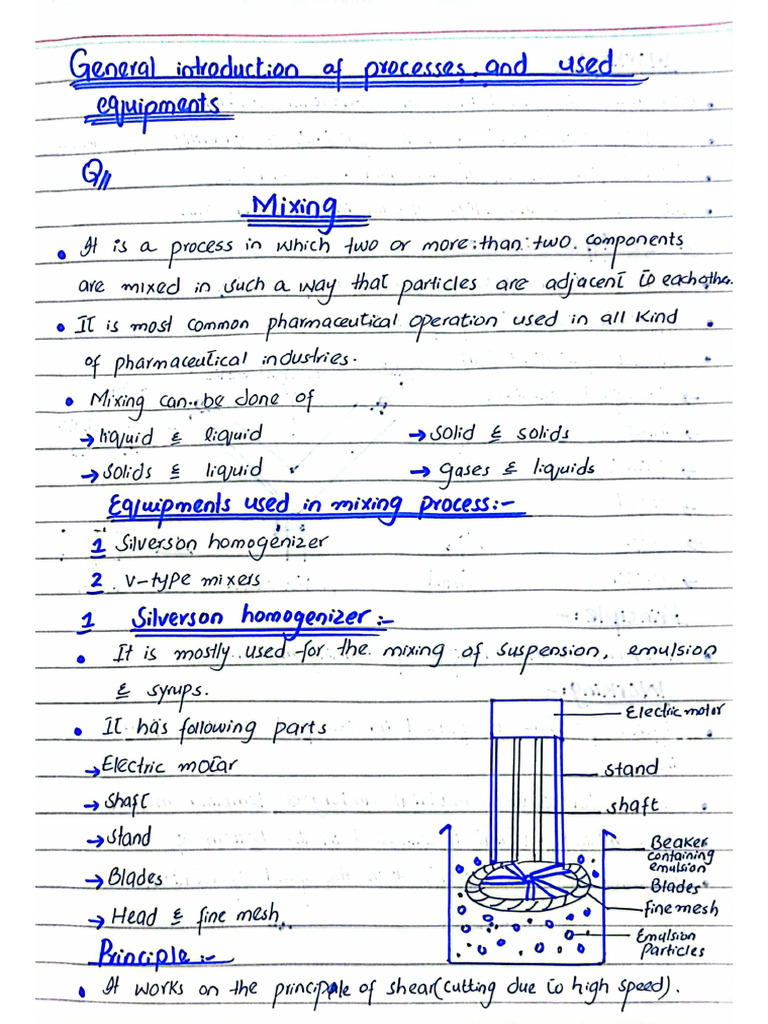 General introduction of processes and used
equipments
Q//
Mixing
• It is a process in which two or more than two components
are mixed in such a way that particles are adjacent to each other.
• It is most common pharmaceutical operation used in all kind
of pharmaceutical industries.
• Mixing can be done of
→ liquid & liquid → solid & solids
→ solids & liquid → gases & liquids
Equipments used in mixing process:-
1 Silverson homogenizer
2 v-type mixers
1 Silverson homogenizer:-
• It is mostly used for the mixing of suspension, emulsion
& syrups.
Electric motor
• It has following parts
→ Electric motar
stand
→ shaft
shaft
→ stand
Beaker
containing
emulsion
→ Blades
Blades
→ Head & fine mesh
fine mesh
Emulsion
Particles
Principle:-
• It works on the principle of shear (cutting due to high speed).